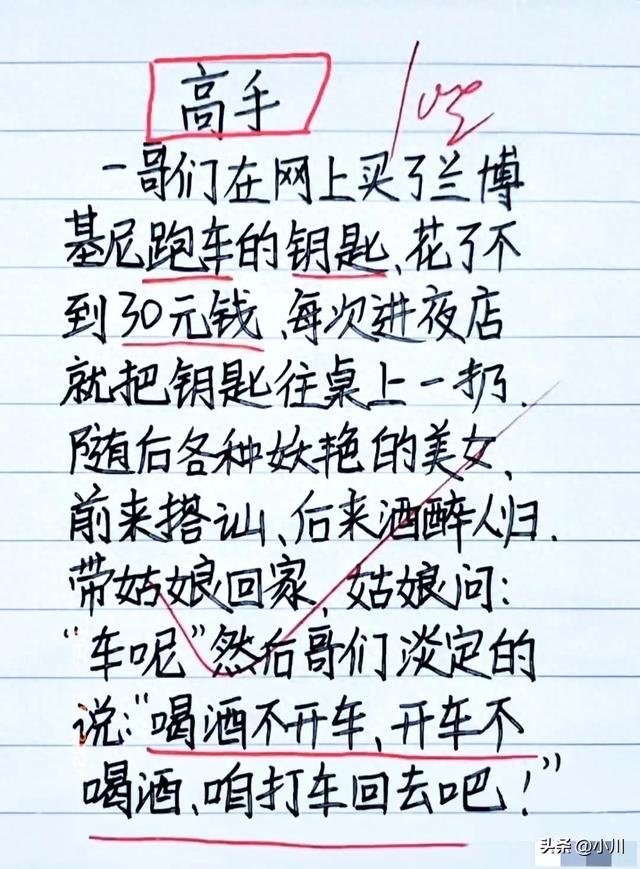 高手
一哥们在网上买了兰博
基尼跑车的钥匙、花了不
到30元钱、每次进夜店
就把钥匙往桌上一扔.
随后各种妖艳的美女、
前来搭讪、后来酒醉人归.
带姑娘回家,姑娘问:
“车呢”然后哥们淡定的
说:“喝酒不开车、开车不
喝酒、咱打车回去吧!”
头条@小川